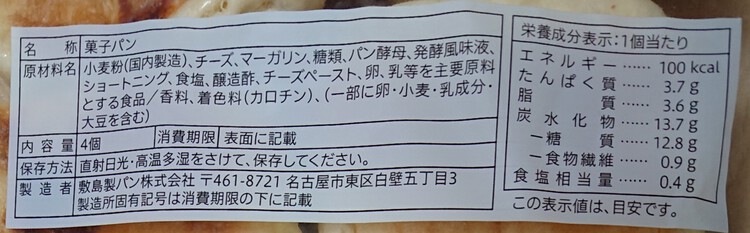 名称 菓子パン
原材料名 小麦粉(国内製造)、チーズ、マーガリン、糖類、パン酵母、発酵風味液、
ショートニング、食塩、醸造酢、チーズペースト、卵、乳等を主要原料
とする食品/香料、着色料(カロチン)、(一部に卵・小麦・乳成分・
大豆を含む)
内容量 4個 消費期限 表面に記載
保存方法 直射日光・高温多湿をさけて、保存してください。
製造者 敷島製パン株式会社 〒461-8721 名古屋市東区白壁五丁目3
製造所固有記号は消費期限の下に記載
栄養成分表示:1個当たり
エネルギー……100 kcal
たんぱく質……3.7 g
脂質……3.6 g
炭水化物……13.7 g
-糖質……12.8 g
-食物繊維……0.9 g
食塩相当量……0.4 g
この表示値は、目安です。